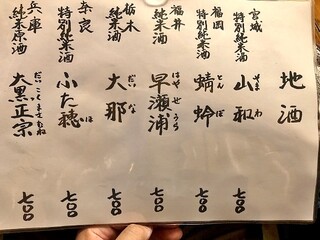 地酒
宮城
特別純米酒
山和
やまわ
七〇〇
福岡
特別純米酒
蜻蛉
とんぼ
七〇〇
福井
純米酒
早瀬浦
はやせうら
七〇〇
栃木
純米酒
大那
だいな
七〇〇
奈良
特別純米酒
ふた穂
ほ
七〇〇
兵庫
純米原酒
大黒正宗
だいこくまさむね
七〇〇